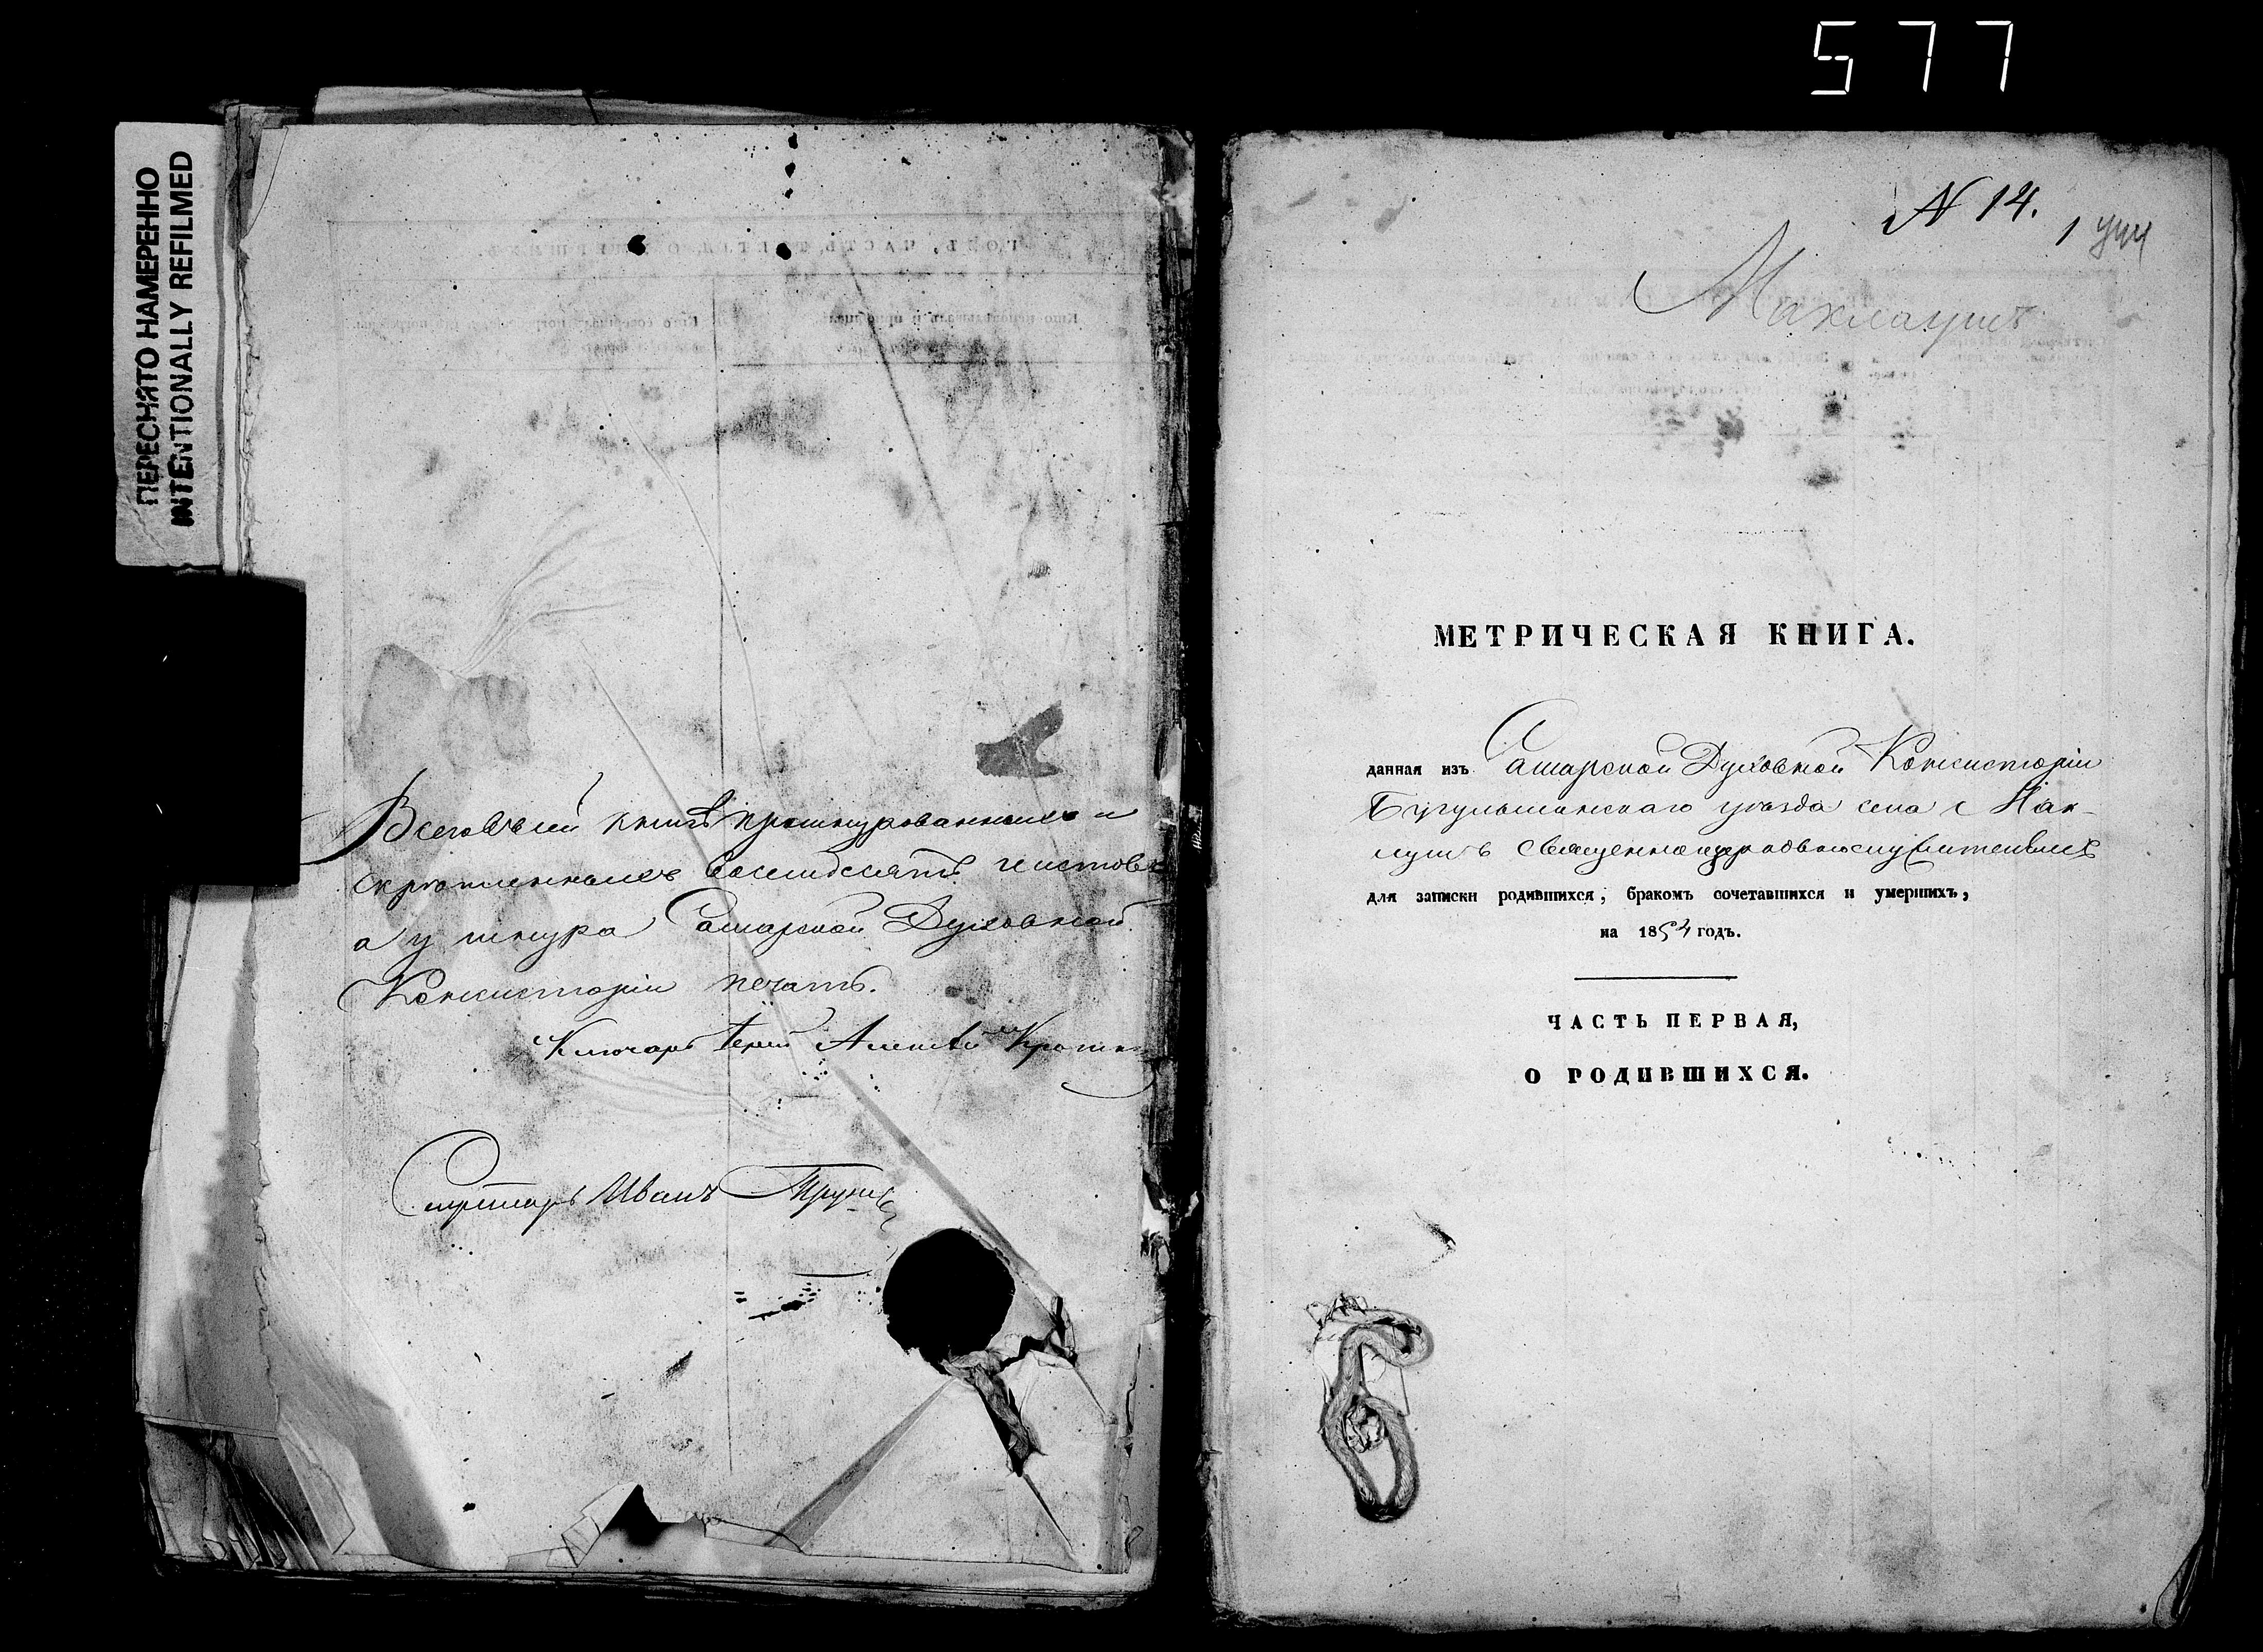 577
ПЕРЕСНЯТО НАМЕРЕННО
INTENTIONALLY REFILMED
Всего въ сей книгѣ прошнурованныхъ и
скрѣпленныхъ восемдесятъ листовъ
а у шнура Самарской Духовной
Консисторіи печать.
Ключарь Іерей Алексѣй
Секретарь Иванъ
N 14.
МЕТРИЧЕСКАЯ КНИГА.
данная изъ Самарской Духовной Консисторіи
Бугульминскаго уѣзда села
священноцерковнослужителямъ
для записки родившихся, бракомъ сочетавшихся и умершихъ,
на 1854 годъ.
ЧАСТЬ ПЕРВАЯ,
О РОДИВШИХСЯ.